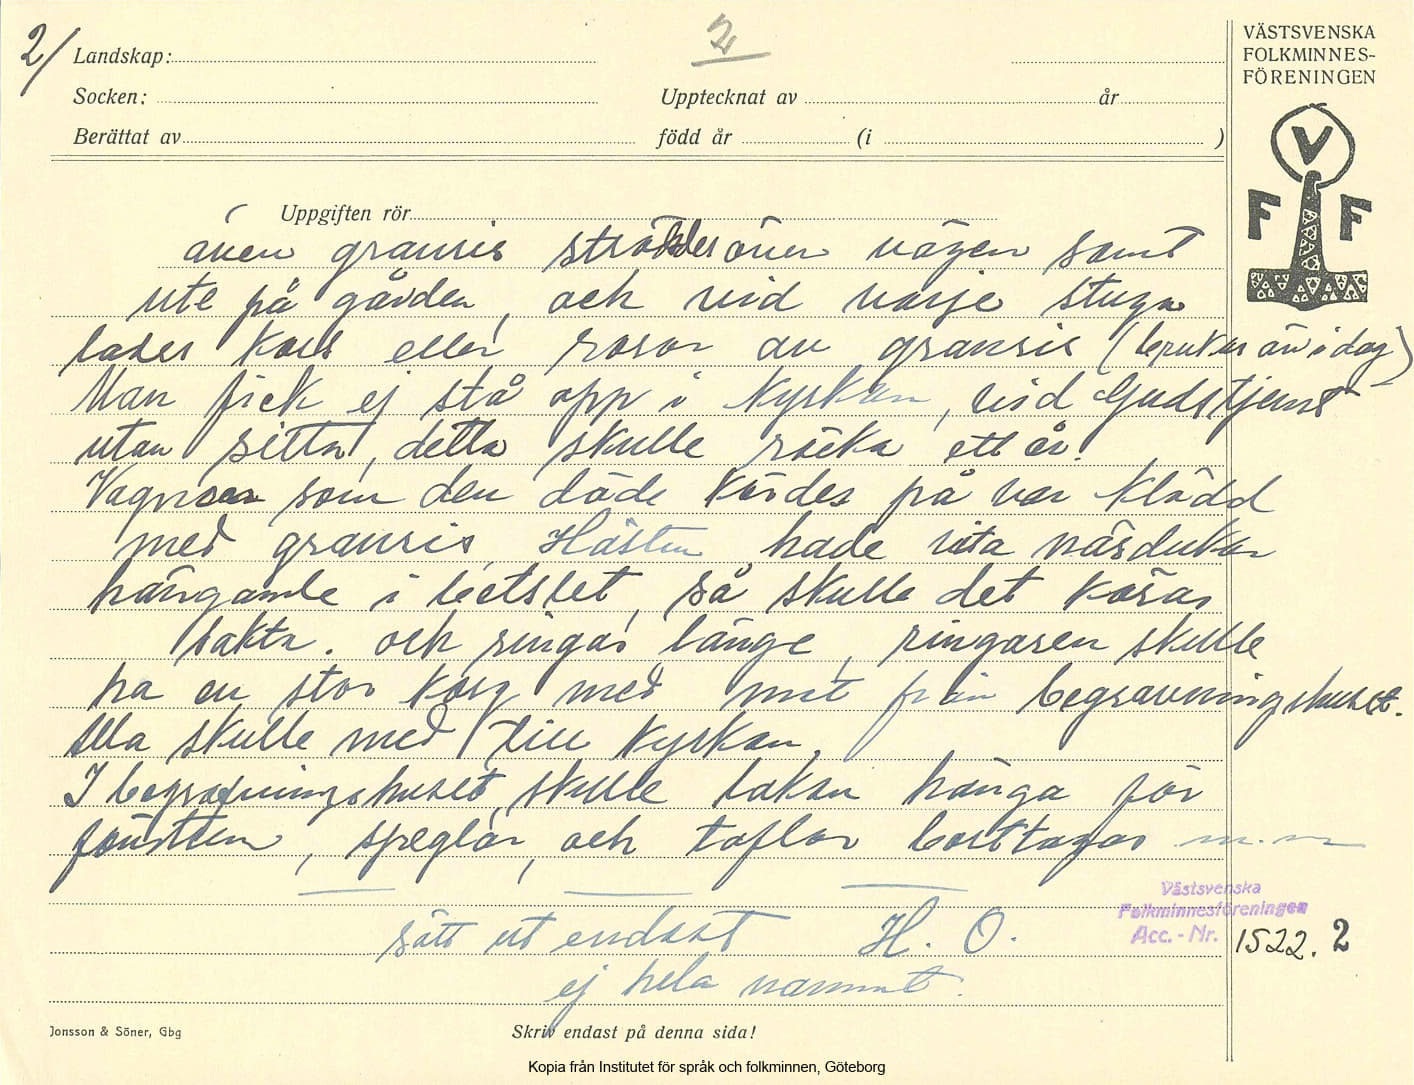 2/
2
VÄSTSVENSKA
FOLKMINNES-
FÖRENINGEN
Landskap:
Socken:
Upptecknat av år
Berättat av född år (i )
V
F F
Uppgiften rör
även granris ströddes över vägen samt
ute på gården, och vid varje stuga
lades kors eller rosor av granris (brukas än i dag)
Man fick ej stå opp i Kyrkan, vid Gudstjenst
utan sitta, detta skulle räcka ett år.
Vagnen som den döde kördes på var klädd
med granris, Hästen hade vita näsdukar
hängande i betslet, så skulle det köras
sakta. och ringas länge, ringaren skulle
ha en stor korg med mat från begravningshuset.
Alla skulle med till Kyrkan,
I begravningshuset skulle lakan hänga för
fönstren, speglar, och taflor borttagas m.m
sätt ut endast H. O.
ej hela namnet.
Västsvenska
Folkminnesföreningen
Acc. - Nr. 1522. 2
Jonsson & Söner, Gbg
Skriv endast på denna sida!
Kopia från Institutet för språk och folkminnen, Göteborg